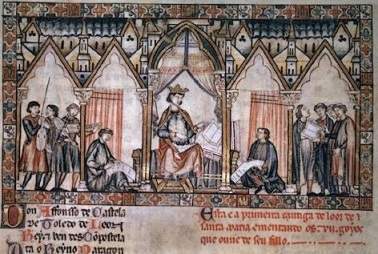 Don Affonsso de Castela
de Toledo de Leon
Rey e ben des Cõpostela
ta o Reyno daragon
Esta e a primeira cãtiga de loor de s
santa maria ementando os .vii. goyos
que ouue de seu fillo.